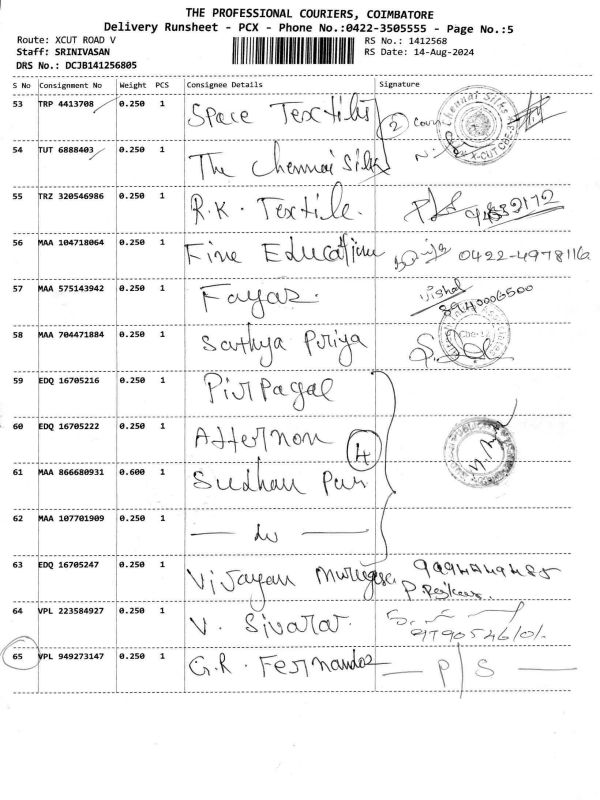 THE PROFESSIONAL COURIERS, COIMBATORE
Delivery Runsheet - PCX - Phone No.:0422-3505555 - Page No.:5
Route: XCUT ROAD V
RS No.: 1412568
Staff: SRINIVASAN
RS Date: 14-Aug-2024
DRS No.: DCJB141256805
S No Consignment No Weight PCS Consignee Details Signature
53 TRP 4413708 0.250 1 Space Textiles
2
54 TUT 6888403 0.250 1 The Chennai Silks
55 TRZ 320546986 0.250 1 R.K. Textile.
56 MAA 104718064 0.250 1 Fine Education 0422-4978116
57 MAA 575143942 0.250 1 Fayaz. Vishal
8940006500
58 MAA 704471884 0.250 1 Sathya Priya
59 EDQ 16705216 0.250 1 Pirpagal
60 EDQ 16705222 0.250 1 Afternon 4
61 MAA 866680931 0.600 1 Sudhan
62 MAA 107701909 0.250 1 — do —
63 EDQ 16705247 0.250 1 Vijayan
64 VPL 223584927 0.250 1 V. Sivaraj.
65 VPL 949273147 0.250 1 G.R. Fernandez — P/S —